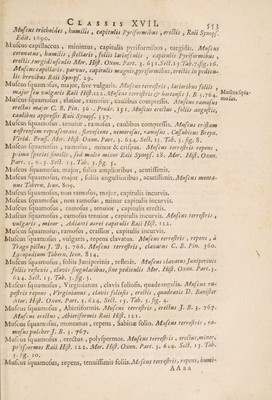 CLASSIS XVII. 553
Muscus trichoides, humilis, capitulis Pyriformibus, erectis, Raii Synops.
Edit. 1690.
Muscus capillaceus, minimus, capitulis pyriformibus, turgidis. Muscus
coronatus, humilis, stellaris, foliis latiusculis, capitulis Pyriformibus,
erectis, turgidiusculis Mor. Hist. Oxon. Part. 3. 631. Sect. 15. Tab. 7. fig. 16.
Muscus capillaris, parvus, capitulis magnis, pyriformibus, erectis in pedicu-
lis brevibus Raii Synops. 29.
Muscus squamosus, major, sive vulgaris. Muscus terrestris, latioribus foliis
major seu vulgaris Raii Hist. 122. Muscus terrestris J. B. 3. 764.
Muscus squamosus, elatior, ramosus, caudibus compressis. Muscus ramosus
erectus major C. B. Pin. 360.
caudibus appressis Raii Synops. 337.
Muscus squamosus, tenuior, ramosus, caudibus compressis.
flavescens, nemorosus, ramosus.
Part. 3. 624. Sect. 15. Tab. 5. fig. 8.
Muscus squamosus, ramosus, minor & crispus. Muscus terrestris repens,
primo similis, sed multo minor Raii Synops. 28. Mor. Hist. Oxon.
Part. 3. 625. Sect. 15. Tab. 5. fig.
Muscus squamosus, major, foliis amplioribus, acutissimis.
Muscus squamosus, major, foliis angustioribus, acutissimis. Muscus monta-
nus Tabern. Icon. 819.
Muscus squamosus, non ramosus, major, capitulis incurvis.
Muscus squamosus, non ramosus, minor capitulis incurvis.
Muscus squamosus, ramosus, tenuior, capitulis erectis.
Muscus squamosus, ramosus tenuior, capitulis incurvis. Muscus terrestris,
vulgaris, minor, Adianti aurei capitulis Raii Hist. 122.
Muscus squamosus, ramosus, crassior, capitulis incurvis.
Muscus squamosus, vulgaris, repens clavatus. Muscus terrestris, repens, à
Trago pictus J. B. 3. 766. Muscus terrestris, clavatus C. B. Pin. 360.
Lycopodium Tabern. Icon. 814.
Muscus squamosus, foliis Juniperinis, reflexis. Muscus clavatus Juniperinis
foliis reflexis, clavis singularibus, sine pediculis Mor. Hist. Oxon. Part. 3.
624. Sect. 15. Tab. 5. fig. 3.
Muscus squamosus, Virginianus, clavis foliosis, quadrangulis. Muscus ru-
pestris repens, Virginianus, clavis foliosis, erectis, quadratis D. Banister
Mor. Hist. Oxon. Part. 3. 624. Sect. 15. Tab. 5. fig. 4.
Muscus squamosus, Abietiformis. Muscus terrestris, erectus J. B. 3. 767.
Muscus erectus, Abietiformis Raii Hist. 121.
Muscus squamosus, montanus, repens, Sabinæ folio. Muscus terrestris, ra-
mosus pulcher J. B. 3. 767.
Muscus squamosus, erectus, polyspermos. Muscus terrestris, erectus, minor,
Raii Hist. 122. Mor. Hist. Oxon. Part. 3. 624. Sect. 15. Tab.
5. fig. 10.
Muscus squamosus, repens, tenuissimis foliis. Muscus terrestris, repens, humi-
AAaa